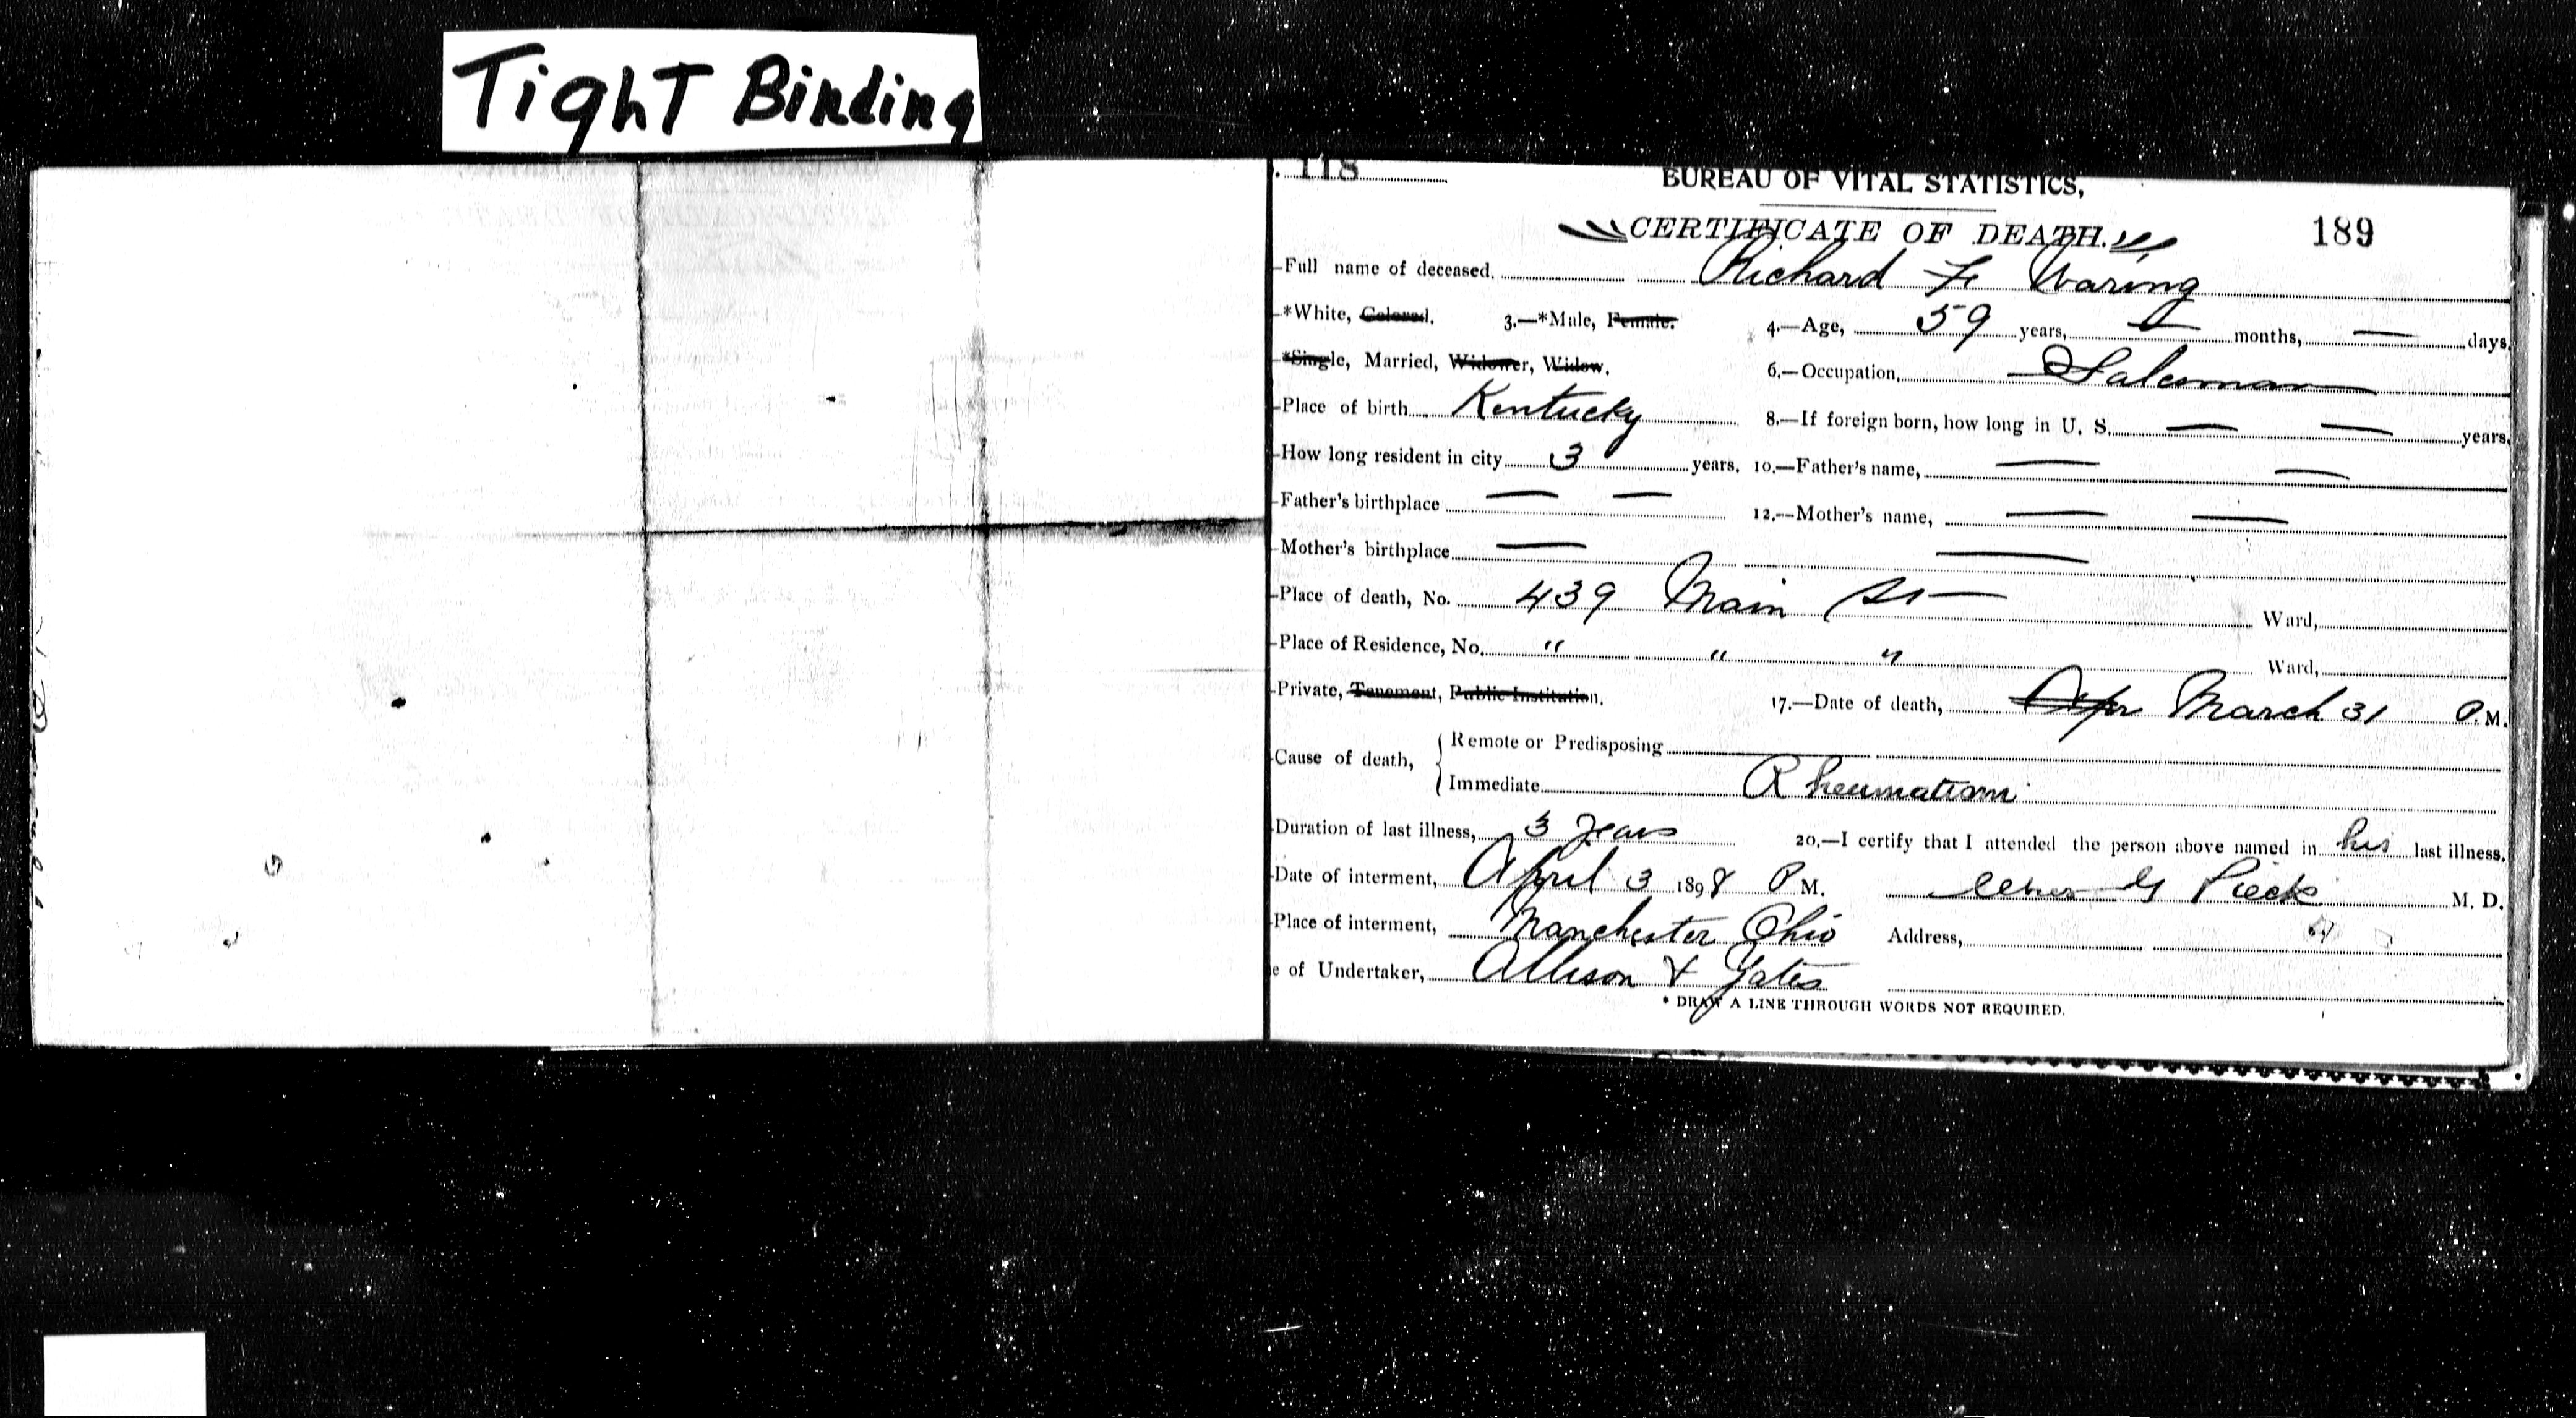 Tight Binding
118
BUREAU OF VITAL STATISTICS,
CERTIFICATE OF DEATH. 189
Full name of deceased. Richard F Waring
*White, Colored. 3.—*Male, Female. 4.—Age, 59 years, — months, — days.
*Single, Married, Widower, Widow. 6.—Occupation, Salesman
Place of birth Kentucky 8.—If foreign born, how long in U. S. — — years.
How long resident in city 3 years. 10.—Father's name, — —
Father's birthplace — — 12.—Mother's name, — —
Mother's birthplace — —
Place of death, No. 439 Main St Ward,
Place of Residence, No. " " " Ward,
Private, Tenement, Public Institution. 17.—Date of death, Apr March 31 P.M.
Cause of death, Remote or Predisposing
Immediate Rheumatism
Duration of last illness, 3 years 20.—I certify that I attended the person above named in his last illness.
Date of interment, April 3 1898 P M. Pieck M. D.
Place of interment, Manchester Ohio Address,
e of Undertaker, Allison & Yates
* DRAW A LINE THROUGH WORDS NOT REQUIRED.